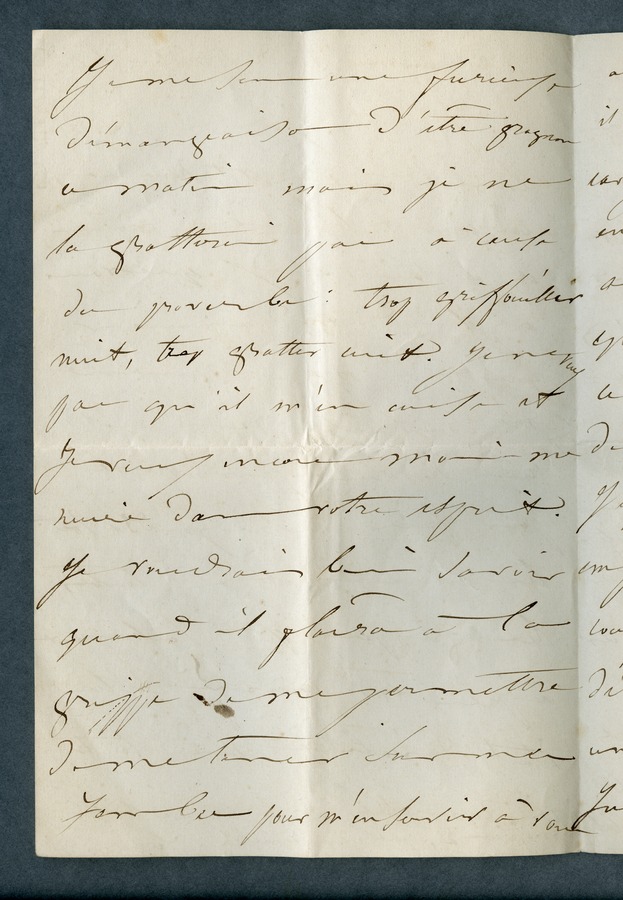 Je me sens une furieuse
démangeaison d'être grognon
ce matin mais je ne
la gratterai pas à cause
du proverbe: trop griffouiller
nuit, trop gratter cuit. Je ne veux
pas qu'il m'en cuise et
Je veux encore moins me
nuire dans votre esprit.
Je voudrais bien savoir
quand il plaira à la
grippe de me permettre
de me tenir sur mes
Jambes pour m'en servir à